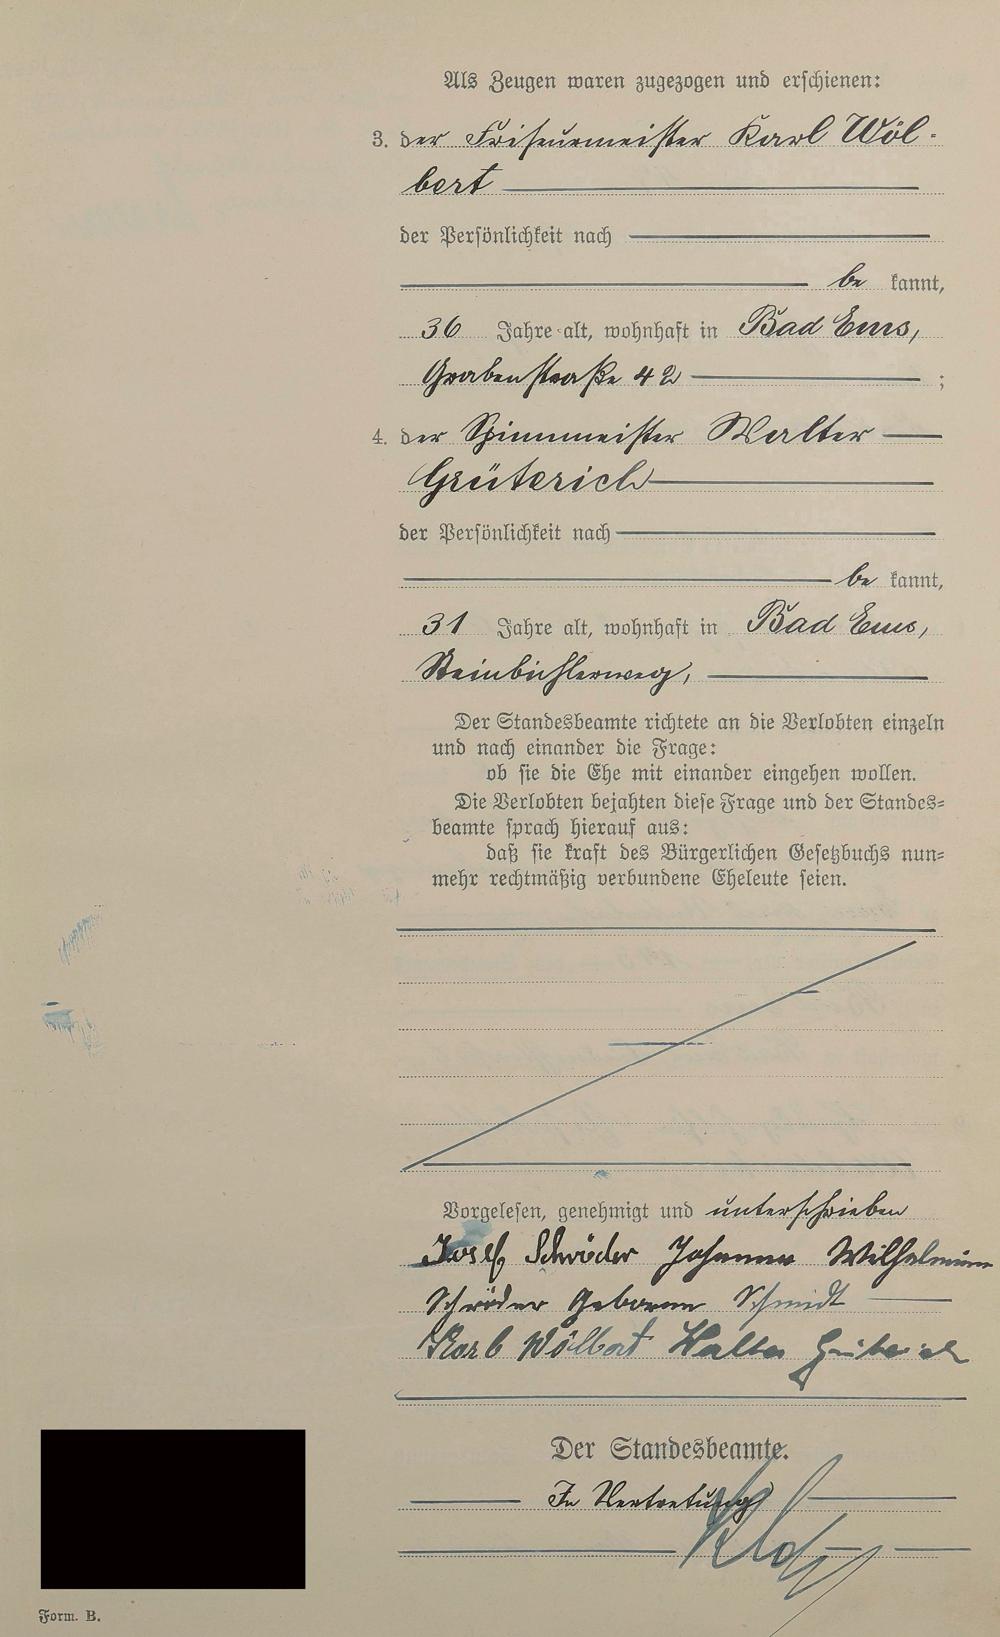 Als Zeugen waren zugezogen und erschienen:
3. der Friseurmeister Karl Wöl-
bert
der Persönlichkeit nach
be kannt,
36 Jahre alt, wohnhaft in Bad Ems,
Grabenstraße 42 ;
4. der Spinnmeister Walter
Grüterich
der Persönlichkeit nach
be kannt,
31 Jahre alt, wohnhaft in Bad Ems,
Der Standesbeamte richtete an die Verlobten einzeln
und nach einander die Frage:
ob sie die Ehe mit einander eingehen wollen.
Die Verlobten bejahten diese Frage und der Standes=
beamte sprach hierauf aus:
daß sie kraft des Bürgerlichen Gesetzbuchs nun=
mehr rechtmäßig verbundene Eheleute seien.
Vorgelesen, genehmigt und unterschrieben
Josef Schröder Johanna Wilhelmine
Schröder geborene Schmidt
Karl Wölbert Walter Grüterich
Der Standesbeamte.
In Vertretung
Form. B.